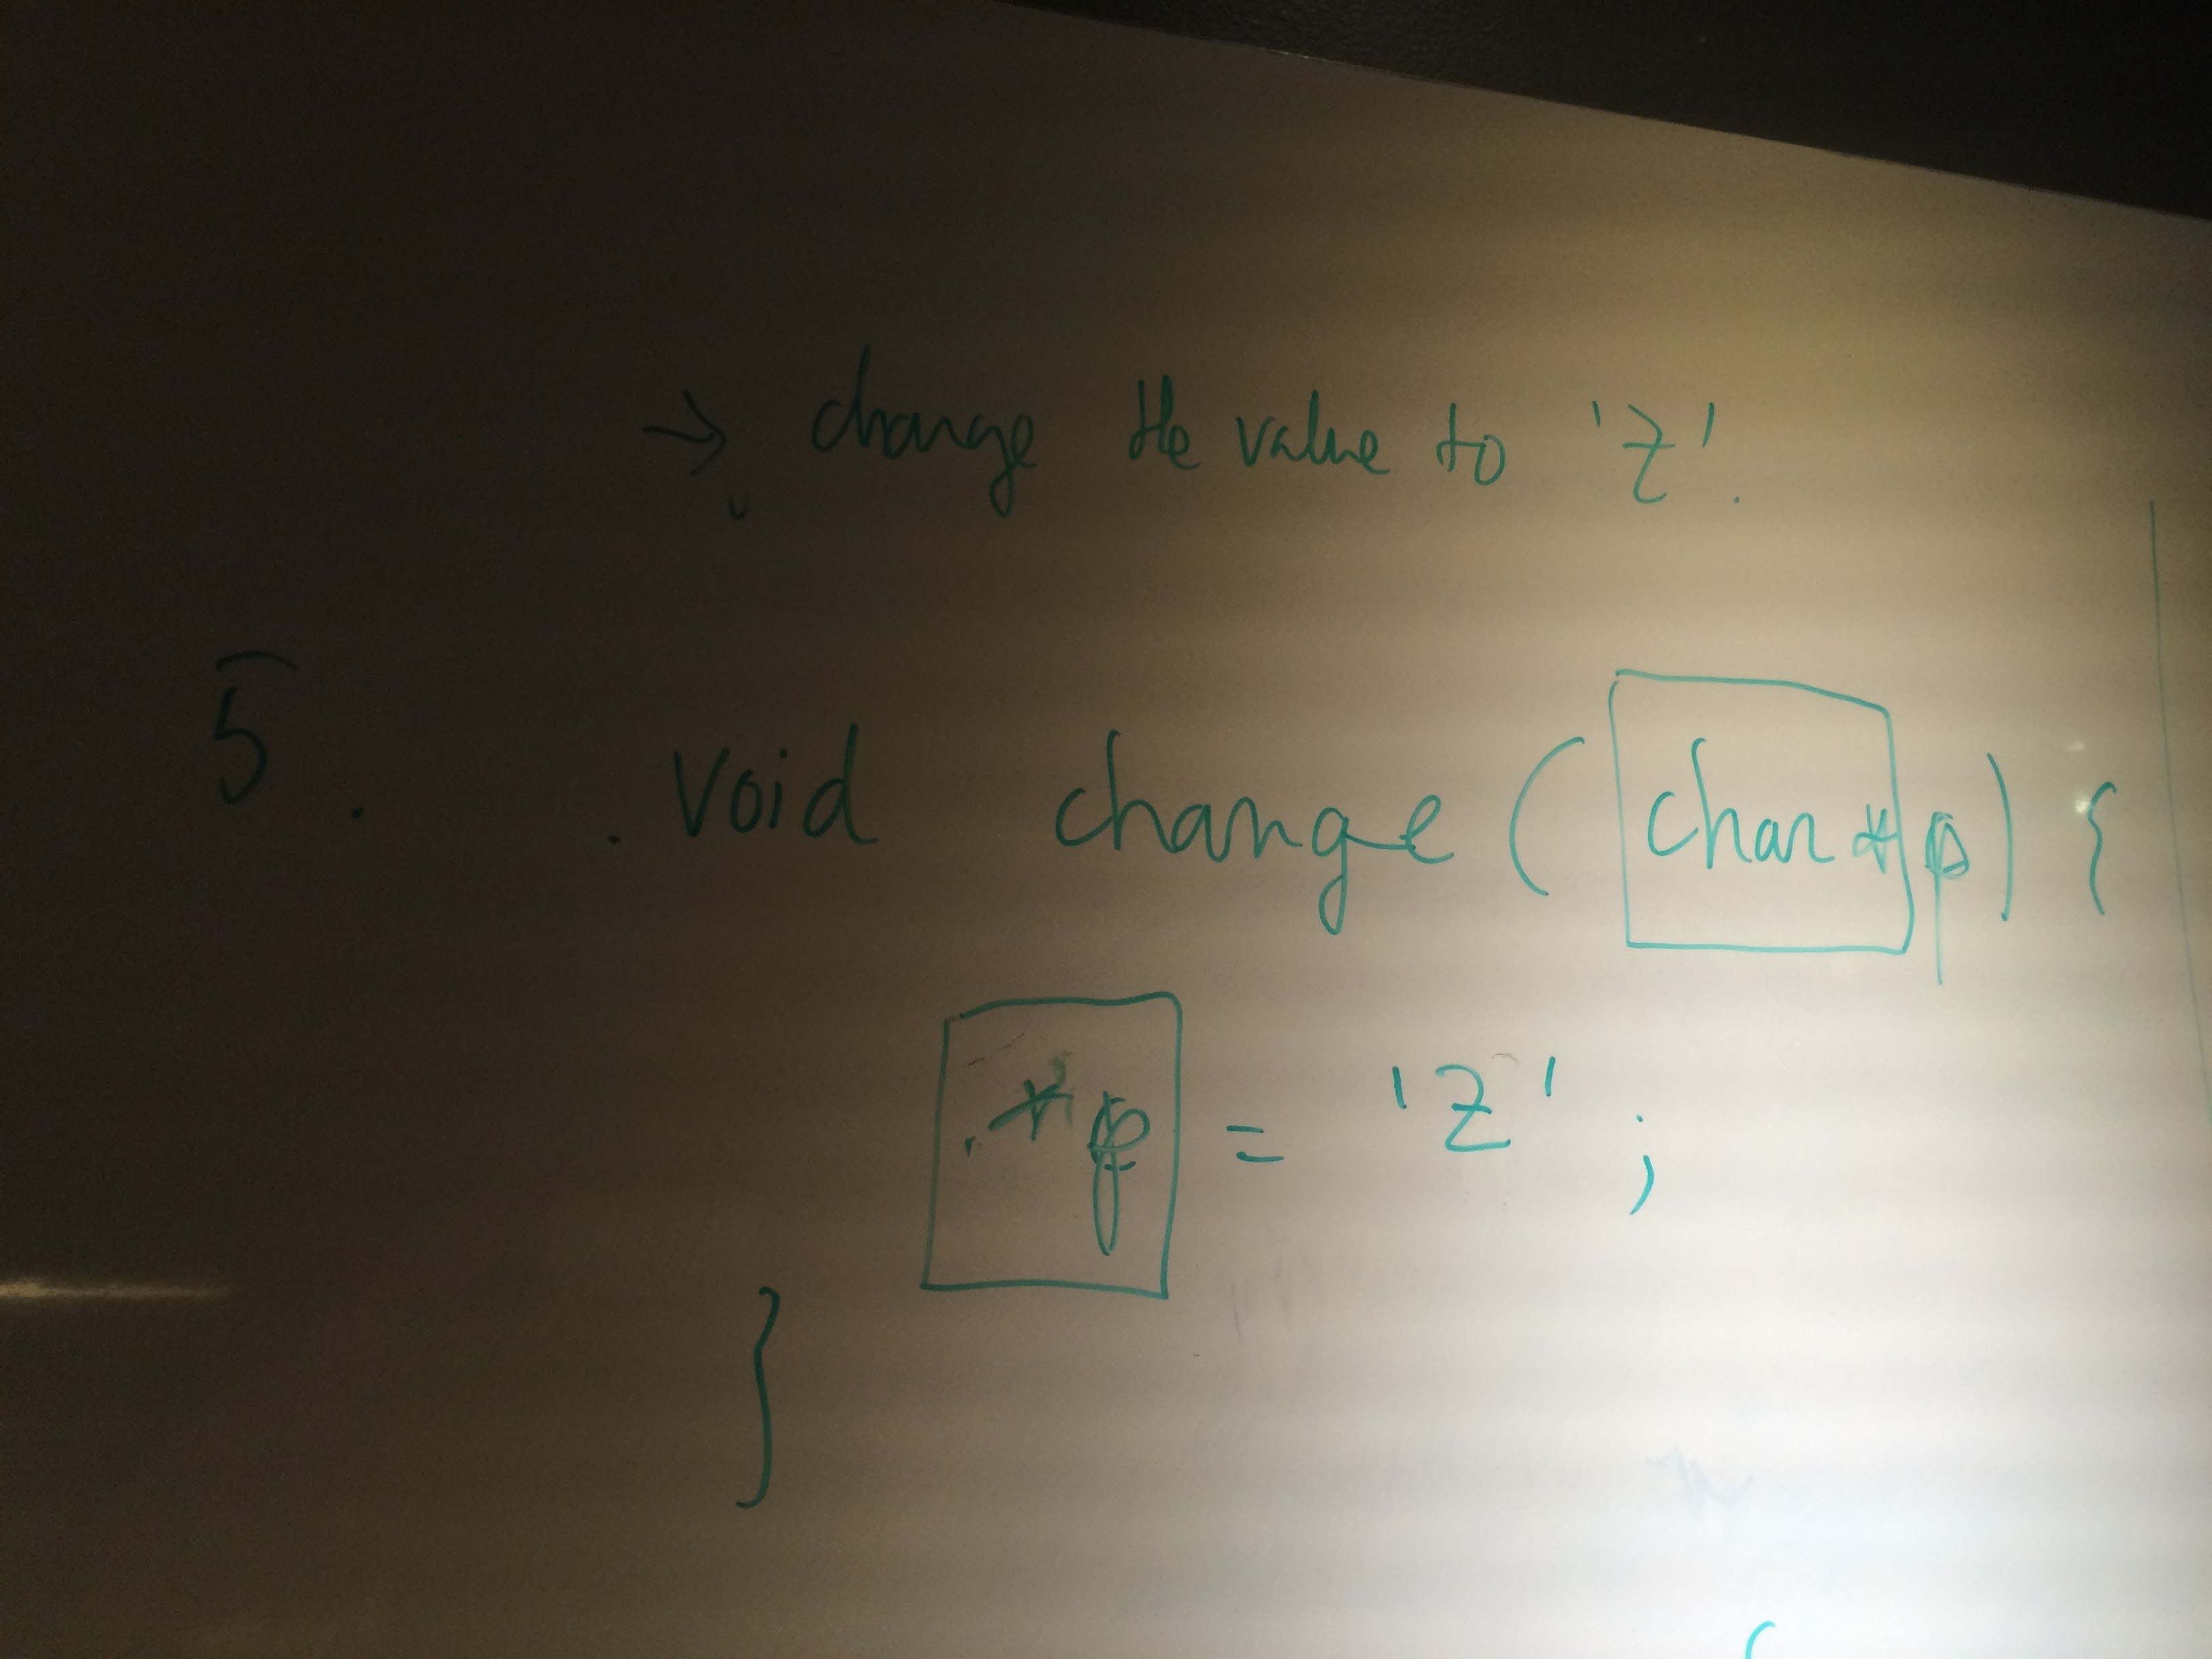 → change the value to 'Z'.
5. void change (char *p) {
*p = 'Z' ;
}